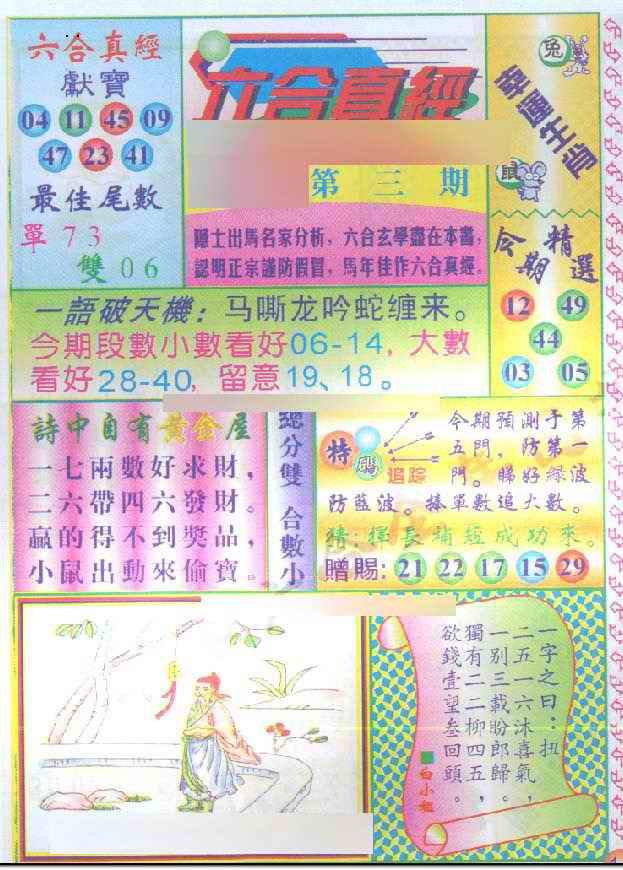 六合真經
獻寶
04 11 45 09
47 23 41
最佳尾數
單 7 3
雙 0 6
六合真經
第三期
隱士出馬名家分析，六合玄學盡在本書，
認明正宗謹防假冒，馬年佳作六合真經。
兔
幸運生肖
鼠
今期
精選
12 49
44
03 05
一語破天機：马嘶龙吟蛇缠来。
今期段數小數看好06-14，大數
看好28-40，留意19、18。
詩中自有黃金屋
一七兩數好求財，
二六帶四六發財。
贏的得不到獎品，
小鼠出動來偷寶。
總分雙 合數小
特碼
追踪
今期預測于第
五門，防第一
門。睇好綠波
防藍波。捧單數追大數。
猜：揮長補短成功來。
贈賜：21 22 17 15 29
一字之曰：扭
二五一六沐喜氣，
一别三載盼郎歸。
獨有二二柳四五，
欲錢壹望叁回頭。
白小姐